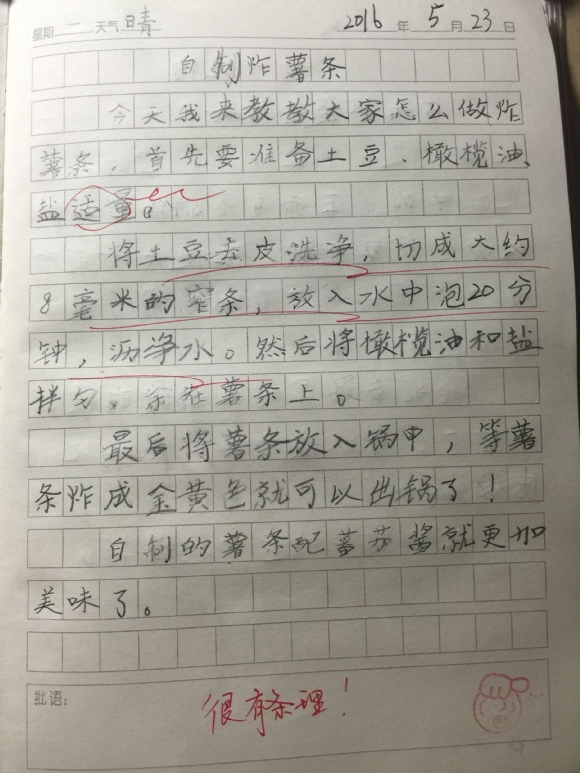 星期一 天气 晴 2016 年 5 月 23 日
自制炸薯条
今天我来教教大家怎么做炸
薯条，首先要准备土豆、橄榄油、
盐适量。
将土豆去皮洗净，切成大约
8毫米的窄条，放入水中泡20分
钟，沥净水。然后将橄榄油和盐
拌匀，涂在薯条上。
最后将薯条放入锅中，等薯
条炸成金黄色就可以出锅了！
自制的薯条配蕃茄酱就更加
美味了。
批语：
很有条理！